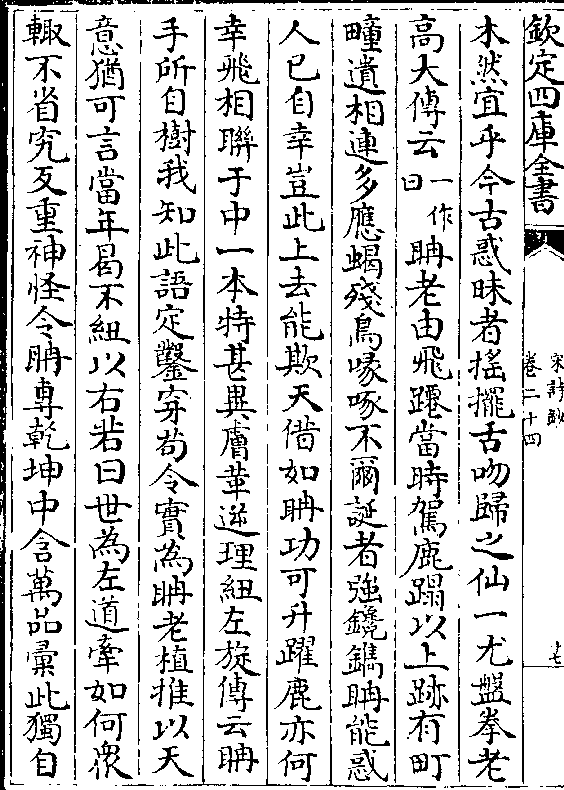 欽定四庫全書
宋詩鈔
卷二十四
十七
木然宜乎今古惑昧者搖擺舌吻歸之仙一尤盤拳老
高大傳云一作曰聃老由飛躔當時駕鹿躢以上跡有町
畽遺相連多應蝎殘鳥喙啄不爾誕者強鑱鐫聃能惑
人已自幸豈此上去能欺天借如聃功可升躍鹿亦何
幸飛相聯于中一本特甚異膚革逆理紐左旋傳云聃
手所自樹我知此語定鑿穿茍令實為聃老植推以天
意猶可言當年曷不紐以右若曰世為左道牽如何衆
輙不省究反重神怪令聃專乾坤中含萬品彙此獨自